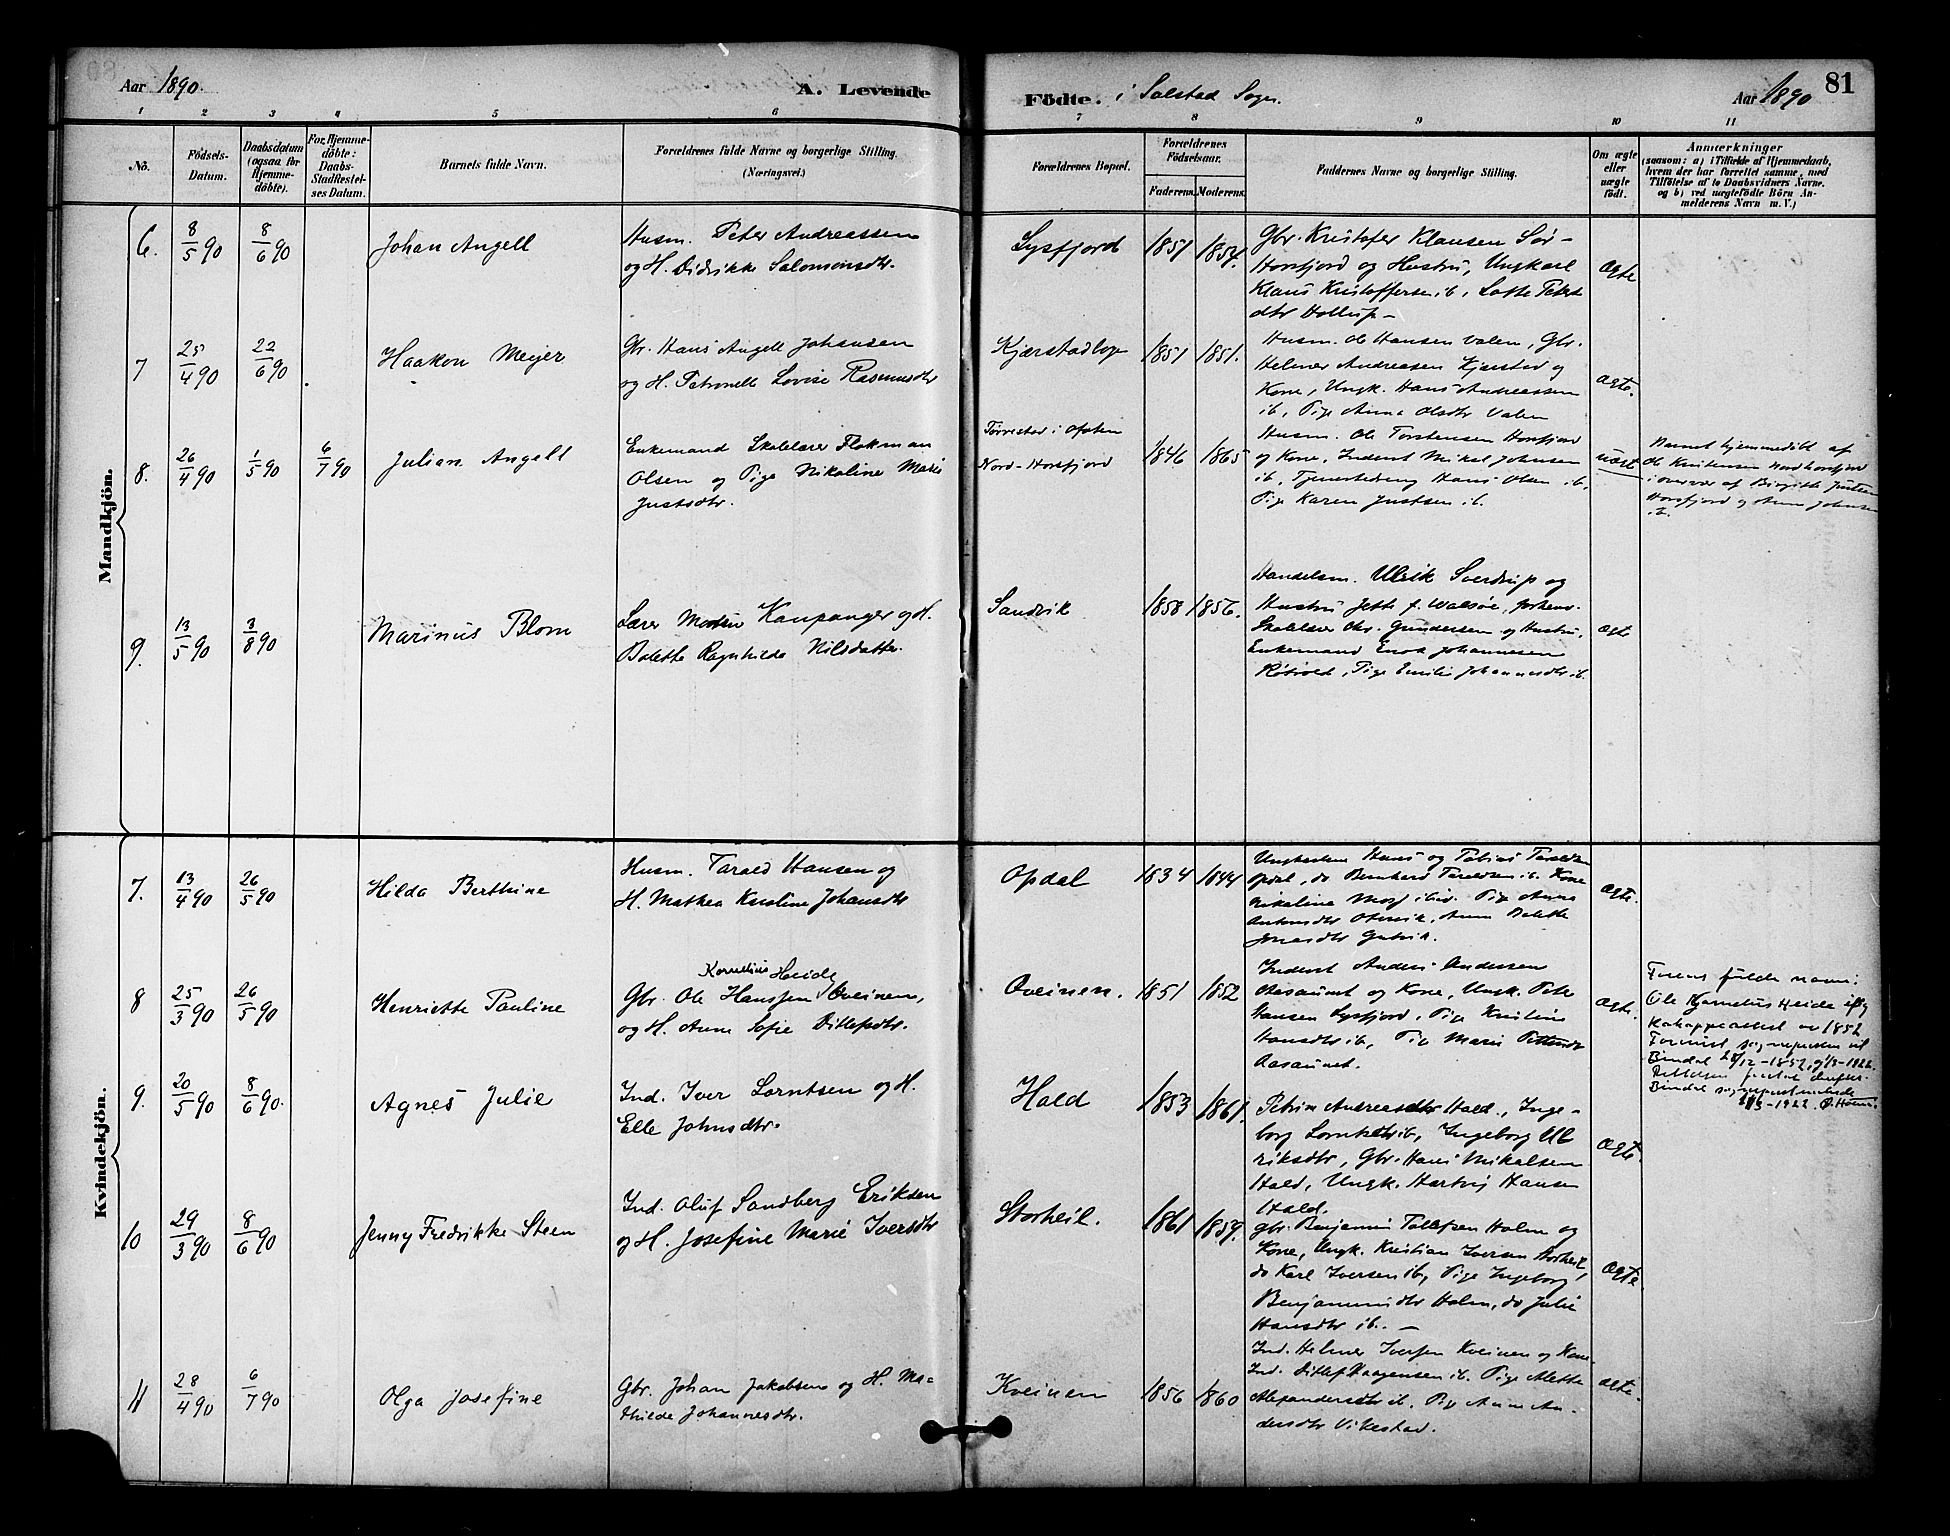 Aar 1890.
A. Levende
Födte. i Solstad Sogn.
Aar 1890
81
1 2 3 4 5 6 7 8 9 10 11
No.
Födsels-
Datum.
Daabsdatum
(ogsaa for
Hjemme-
döbte).
For Hjemme-
döbte:
Daabs-
Stadfæstel-
ses Datum.
Barnets fulde Navn.
Forældrenes fulde Navne og borgerlige Stilling.
(Næringsvei.)
Forældrenes Bopæl.
Forældrenes
Födselsaar.
Faderens. Moderens.
Faddernes Navne og borgerlige Stilling.
Om ægte
eller
uægte
født.
Anmærkninger
(saasom: a) i Tilfælde af Hjemmedaab,
hvem der har forrettet samme, med
Tilföielse af to Daabsvidners Navne.
og b) ved uægtefödte Börn An-
melderens Navn m. V.)
Mandkjön.
6. 8/5 90 8/6 90 Johan Angell
Husm. Peter Andreassen
og H. Didrikke Salomonsdtr.
Lysfjord 1851 1854.
Gbr. Kristofer Klausen Sör-
Horsfjord og Hustru, Ungkarl
Klaus Kristoffersen ib, Lotte Peters
dtr Hollup-
Ægte
7 25/4 90 22/6 90 Haakon Meyer
Gbr. Hans Angell Johansen
og H. Petronelle Lovise Rasmusdtr
Kjærstadlop 1851 1851.
Husm. Ole Hansen Valen, Gbr.
Helmer Andreasen Kjerstad og
Kone, Ungk. Hans Andreassen
ib, Pige Anna Olsdtr Valen
Ægte.
8. 26/4 90 1/5 90 6/7 90 Julian Angell
Enkemand Skolelærer Flokman
Olsen og Pige Nikoline Marie
Justsdtr.
Tørrestad i Ofoten
Nord-Horsfjord
1846 1865
Husm. Ole Torstensen Horsfjord
og Kone, Inderst Mikal Johnsen
ib, Tjenestedreng Hans Olsen ib,
Pige Karen Justsen ib.
uægte
Barnet hjemmedöbt af
Ole Kristensen Nordhorsfjord
i overvær af Birgitte Justsen
Horsfjord og Anne Johnsen
ib.
9. 13/5 90 3/8 90 Marinus Blom
Lærer Morten Kaupanger og H.
Bolette Ragnhilda Nilsdatter.
Sandvik 1858 1856.
Handelsm. Ulrik Sverdrup og
Hustru Jette f. Walsöe,
Skolelærer Chr. Gundersen og Hustru,
Enkemand Enok Johannesen
Röivold, Pige Emilie Johannesdtr ib.
Ægte
Kvindekjön.
7. 13/4 90 26/5 90 Hilda Berthine
Husm. Tarald Hansen og
H. Mathea Karoline Johansdtr
Opdal 1834 1844
Ungkarlene Hans og Tobias Taraldsen
Opdal, do Bernhard Taraldsen ib. Kone
Nikoline Moe ibid. Pige Anna
Antonsdtr Otervik, Anne Bolette
Jonasdtr Gutvik.
Ægte.
8 25/3 90 26/5 90 Henriette Pauline
Kornelius Heide
Gbr. Ole Hanssen Oveinen,
og H. Anne Sofie Ditlefsdtr.
Oveinen. 1851 1852
Inderst Anders Andersen
Aasaunet og Kone, Ungk. Peter
Hansen Lysfjord, Pige Kristine
Hansdtr ib, Pige Marie Pettersdtr
Aasaunet.
Ægte.
Farens fulde navn:
Ole Kornelius Heide iflg
Kokoppeattest av 1852
9. 20/5 90 8/6 90. Agnes Julie
Ind. Iver Lorntsen og H.
Elle Johnsdtr.
Hald 1853 1861.
Petrine Andreasdtr Hald, Inge-
borg Lorntsdtr ib, Ingeborg Ul
riksdtr, Gbr. Hans Mikalsen
Hald, Ungk. Hartvig Hansen
Hald.
Ægte.
10 29/3 90 8/6 90 Jenny Fredrikke Steen
Ind. Oluf Sandberg Eriksen
og H. Josefine Marie Iversdtr
Storheil. 1861 1859.
gbr. Benjamin Tollefsen Holm og
Kone, Ungk. Kristian Iversen Storheil,
do Karl Iversen ib, Pige Ingeborg
Benjaminsdtr Holm, do Julie
Hansdtr ib. -
Ægte
11 28/4 90 6/7 90 Olga Josefine
Gbr. Johan Jakobsen og H. Ma-
thilde Johannesdtr.
Kveinen 1856 1860
Ind. Helmer Iversen Kveinen og Kone
Ind. Ditlef Haagensen ib. Pige Alette
Alexandersdtr ib. Pige Anne An-
dersdtr Vikestad.
Ægte.